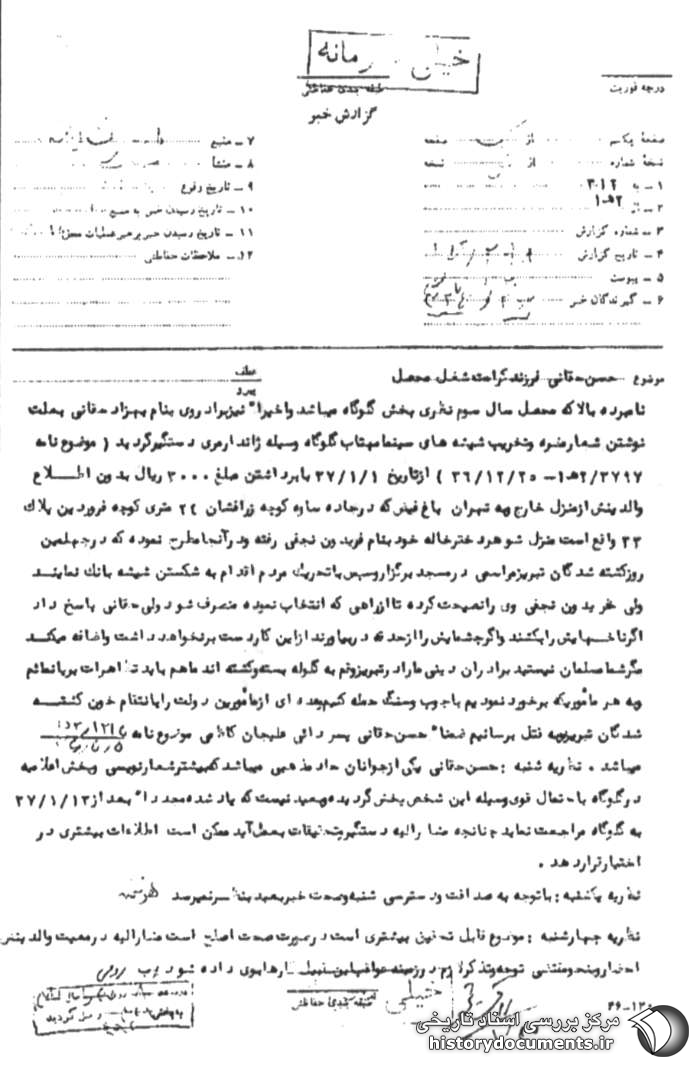 درجه فوریت
طبقه بندی حفاظتی
گزارش خبر
صفحهٔ یکم از صفحه
نسخهٔ شماره از نسخه
۱ ـ به ۳۱۲
۲ ـ از ۱ه‍۲
۳ ـ شماره گزارش
۴ ـ تاریخ گزارش
۵ ـ پیوست
۶ ـ گیرندگان خبر
۷ ـ منبع
۸ ـ منشأ
۹ ـ تاریخ وقوع
۱۰ ـ تاریخ رسیدن خبر به منبع
۱۱ ـ تاریخ رسیدن خبر برهبر عملیات
۱۲ ـ ملاحظات حفاظتی
موضوع حسن حقانی فرزند کرامت شغل محصل
عطف
پیرو
نامبرده بالا که محصل سال سوم نظری بخش گلوگاه میباشد و اخیرا" نیز برادر وی بنام بهزاد حقانی بعلت
نوشتن شعار مضره و تخریب شیشه های سینما مهتاب گلوگاه وسیله ژاندارمری دستگیر گردید ( موضوع نامه
۳۷۹۷/۲ه‍۱ـ ۳۶/۱۲/۲۵ ) از تاریخ ۳۷/۱/۱ با برداشتن مبلغ ۳۰۰۰ ریال بدون اطلاع
والدینش از منزل خارج و به تهران باغ فیض که در جاده ساوه کوچه زرافشان ۲۴ متری کوچه فروردین پلاک
۳۳ واقع است منزل شوهر دختر خاله خود بنام فریدون نجفی رفته و در آنجا مطرح نموده که در چهلمین
روز کشته شدگان تبریز مراسمی در مسجد برگزار و سپس با تحریک مردم اقدام به شکستن شیشه بانک نمایند
ولی فریدون نجفی وی را نصیحت کرده تا از راهی که انتخاب نموده منصرف شود ولی حقانی پاسخ داد
اگر ناخنهایش را بکشند و اگر چشمایش را از حدقه در بیاورند از این کار دست بر نخواهد داشت و اضافه میکند
مگر شما مسلمان نیستید برادران دینی ما را در تبریز و قم به گلوله بسته و کشته اند ما هم باید تظاهرات بر پا نمائیم
و به هر مأموریکه برخورد نمودیم با چوب و سنگ حمله کنیم و عده ای از مأمورین دولت را بانتقام خون کشته
شدگان تبریز و به قتل برسانیم ضمنا" حسن حقانی پسر دائی علیجان کاظمی موضوع نامه
میباشد . نظریه شنبه : حسن حقانی یکی از جوانان حاد مذهبی میباشد که بیشتر شعار نویسی و پخش اعلامیه
در گلوگاه با حتمال قوی وسیله این شخص پخش گردیده و بعید نیست که یاد شده مجددا" بعد از ۳۷/۱/۱۳
به گلوگاه مراجعت نماید چنانچه مشارالیه دستگیر و تحقیقات بعمل آید ممکن است اطلاعات بیشتری در
اختیار قرار دهد .
نظریه یکشنبه : با توجه به صداقت و دسترسی شنبه و صحت خبر بعید بنظر نمیرسد
نظریه چهارشنبه : موضوع قابل تحقیق بیشتری است در صورت صحت اصلح است مشارالیه در معیت والدینش
احضار و پند و مقتضی توجه و تذکر لازم در زمینه عواقب این قبیل کارها بوی داده شود
طبقه بندی حفاظتی
مرکز بررسی اسناد تاریخی
historydocuments.ir